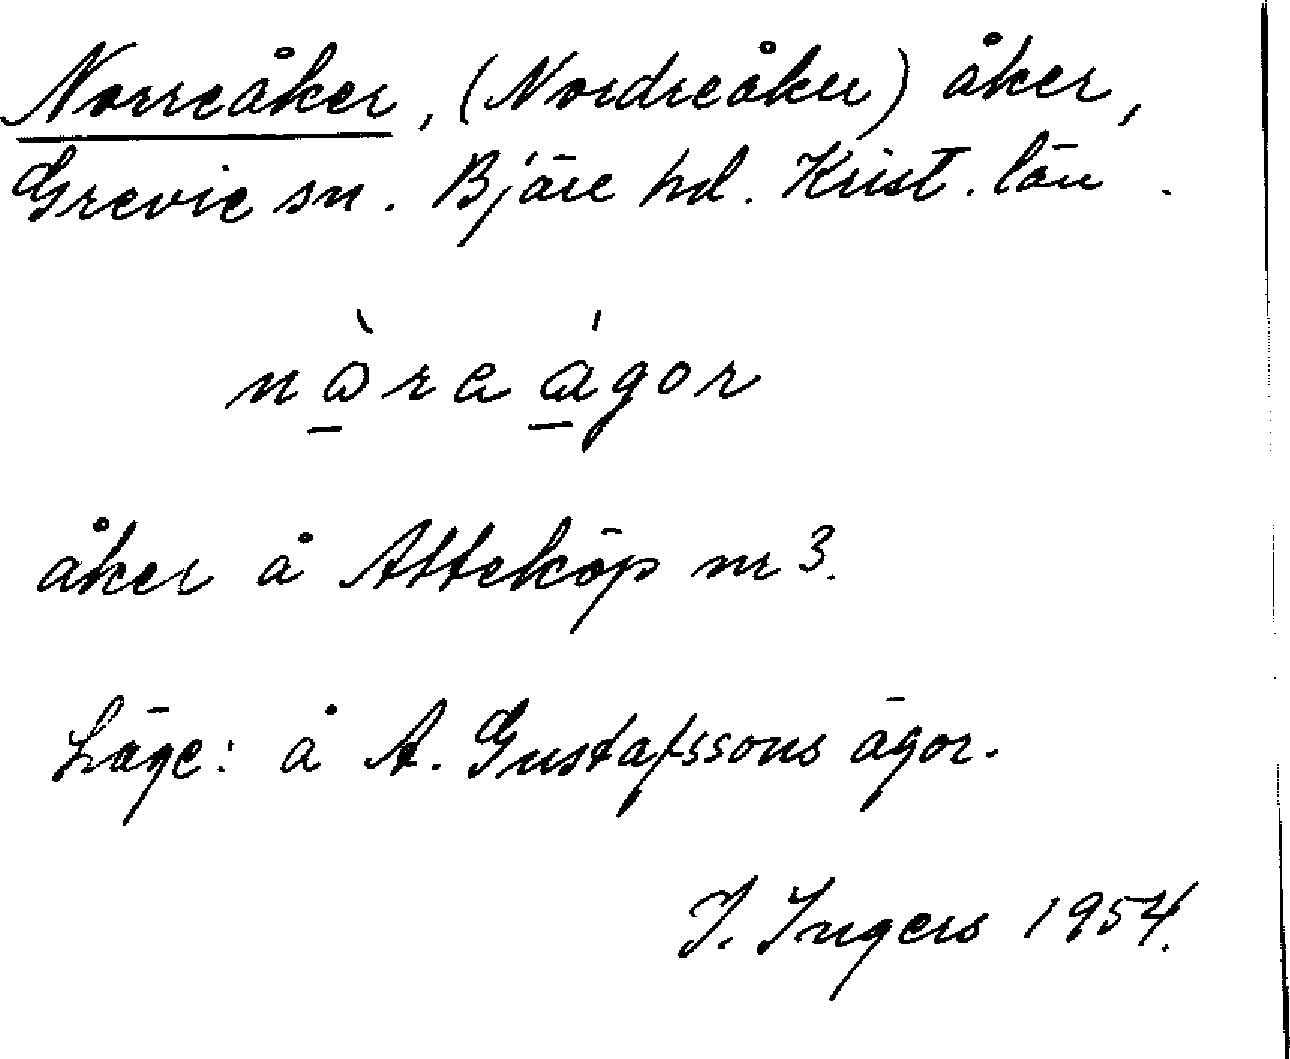 Norreåker, (Nordreåker) åker,
Grevie sn. Bjäre hd. Krist. län.
nàra ágor
åker å Atteköp nr 3.
Läge: å A. Gustafssons ägor.
I. Ingers 1954.